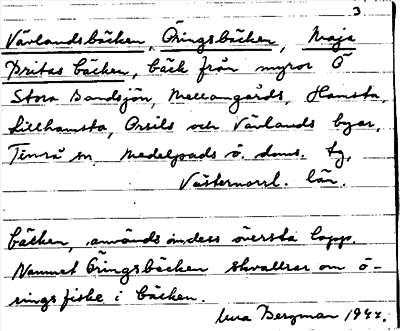 3.
Vävlandsbäcken, Öringsbäcken, Maja
Britas bäcken, bäck från myror Ö
Stora Sandsjön, Mellangårds, Hamsta,
Lillhamsta, Orsils och Vävlands byar,
Timrå sn, Medelpads ö. doms. tg,
Västernorrl. län.
bäcken, används om dess översta lopp.
Namnet Öringsbäcken skvallrar om ö-
ringsfiske i bäcken.
Bergman 1942.